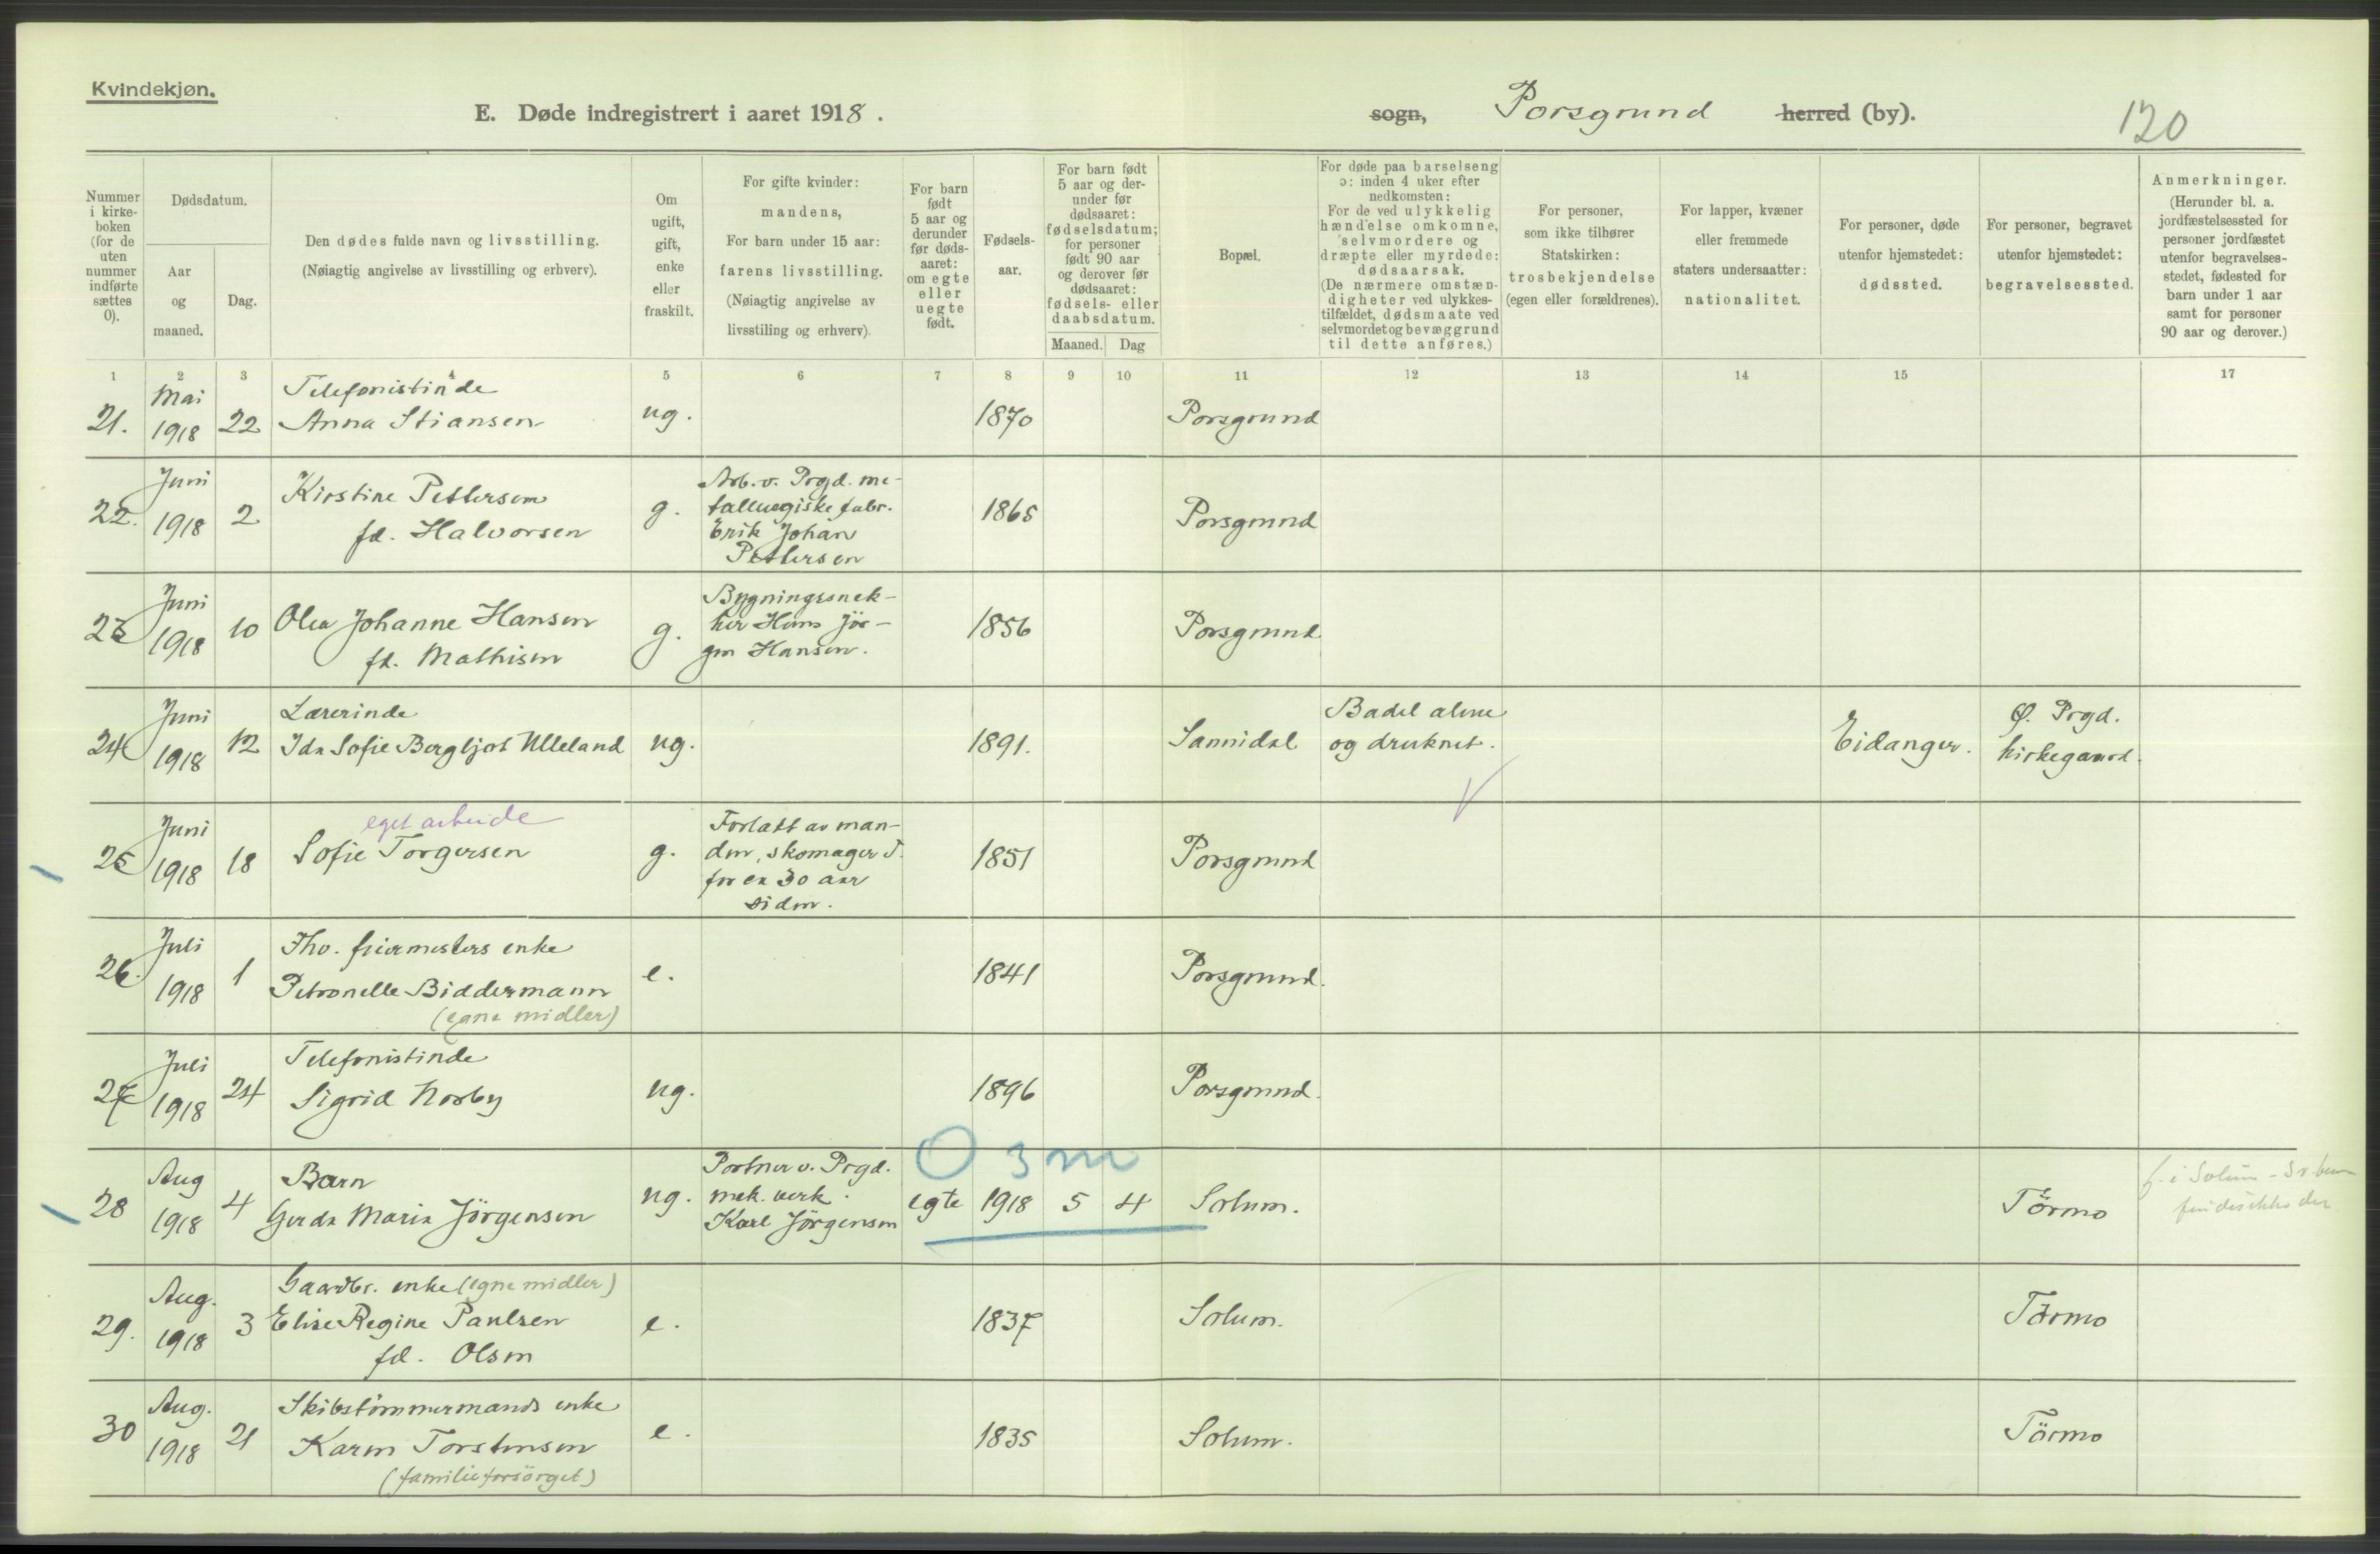 Kvindekjøn.
E. Døde indregistrert i aaret 1918.
sogn, Porsgrund herred (by).
120
Nummer i kirke-boken (for de uten nummer indførte sættes 0).
Dødsdatum.
Aar og maaned.
Dag.
Den dødes fulde navn og livsstilling.
(Nøiagtig angivelse av livsstilling og erhverv).
Om ugift, gift, enke eller fraskilt.
For gifte kvinder: mandens,
For barn under 15 aar: farens livsstilling.
(Nøiagtig angivelse av livsstiling og erhverv).
For barn født 5 aar og derunder før døds-aaret: om egte eller uegte født.
Fødsels-aar.
For barn født 5 aar og der-under før dødsaaret: fødselsdatum; for personer født 90 aar og derover før dødsaaret: fødsels- eller daabsdatum.
Maaned. Dag
Bopæl.
For døde paa barselseng ɔ: inden 4 uker efter nedkomsten:
For de ved ulykkelig hændelse omkomne, selvmordere og dræpte eller myrdede: dødsaarsak.
(De nærmere omstæn-digheter ved ulykkes-tilfældet, dødsmaate ved selvmordet og bevæggrund til dette anføres.)
For personer, som ikke tilhører Statskirken: trosbekjendelse (egen eller forældrenes).
For lapper, kvæner eller fremmede staters undersaatter: nationalitet.
For personer, døde utenfor hjemstedet: dødssted.
For personer, begravet utenfor hjemstedet: begravelsessted.
Anmerkninger.
(Herunder bl. a. jordfæstelsessted for personer jordfæstet utenfor begravelses-stedet, fødested for barn under 1 aar samt for personer 90 aar og derover.)
1 2 3 4 5 6 7 8 9 10 11 12 13 14 15 17
21. Mai 1918 22 Telefonistinde Anna Stiansen ug. 1870 Porsgrund
22. Juni 1918 2 Kirstine Pettersen fd. Halvorsen g. Arb. v. Prgd. me-tallurgiske fabr. Erik Johan Pettersen 1865 Porsgrund
23 Juni 1918 10 Olea Johanne Hansen fd. Mathisen g. Bygningssnek-ker Hans Jör-gen Hansen. 1856 Porsgrund
24 Juni 1918 12 Lærerinde Ida Sofie Bergljot Ulleland ug. 1891. Sannidal Badet alene og druknet. Eidanger. Ø. Prgd. kirkegaard.
25 Juni 1918 18 eget arbeide Sofie Torgersen g. Forlatt av man-den, skomager T. for ca 30 aar siden. 1851 Porsgrund
26. Juli 1918 1 Fhv. feiermesters enke Petronelle Biddermann (egne midler) e. 1841 Porsgrund.
27 Juli 1918 24 Telefonistinde Sigrid Norby ug. 1896 Porsgrund.
O 3 m
28 Aug 1918 4 Barn Gerda Maria Jörgensen ug. Portner v. Prgd. mek. verk. Karl Jörgensen egte 1918 5 4 Solum. Törmo f. i Solum -
29. Aug. 1918 3 Gaardbr. enke (egne midler) Elise Regine Paulsen fd. Olsen e. 1837 Solum. Törmo
30 Aug. 1918 21 Skibstömmermands enke Karen Torstensen (familieforsörget) e. 1835 Solum. Törmo